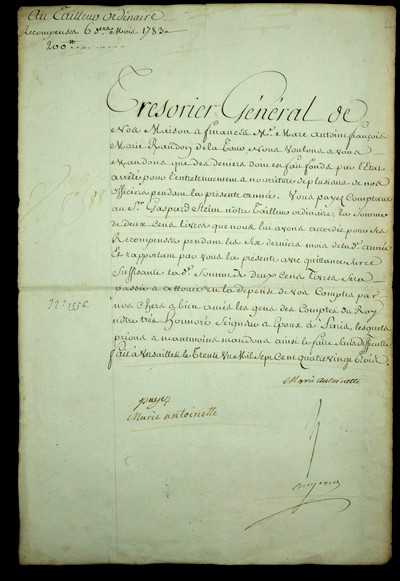 Au Tailleur ordinaire
Recompenses 6 ders Mois 1783.
200
Tresorier Général de
nos Maison et finances Mr. Marc Antoine françois
Marie Randon de la Tour, Nous voulons et vous
mandons que des deniers dont est fait fonds par l'Etat
arrêté pour l'entretennement et nourriture de plusieurs de nos
officiers pendant la présente année. Vous payez Comptant
au Sr. Gaspard notre Tailleur ordinaire, la Somme
de deux cens livres que nous lui avons accordée pour ses
Recompenses pendant les Six derniers mois de lad. année
Et rapportant par vous la presente avec quittance sur ce
Suffisante la de. Somme de deux Cens Livres sera
passée et allouée en la dépense de vos Comptes par
nos Chers et bien amés les gens des Comptes du Roy
notre très Honnoré Seigneur et Epoux à Paris, lesquels
prions et neantmoins mandons ainsi le faire Sans difficulté
fait à Versailles le trente Un Mil Sept Cent quatre vingt trois.
No. 1156.
Marie antoinette
payez
Marie antoinette